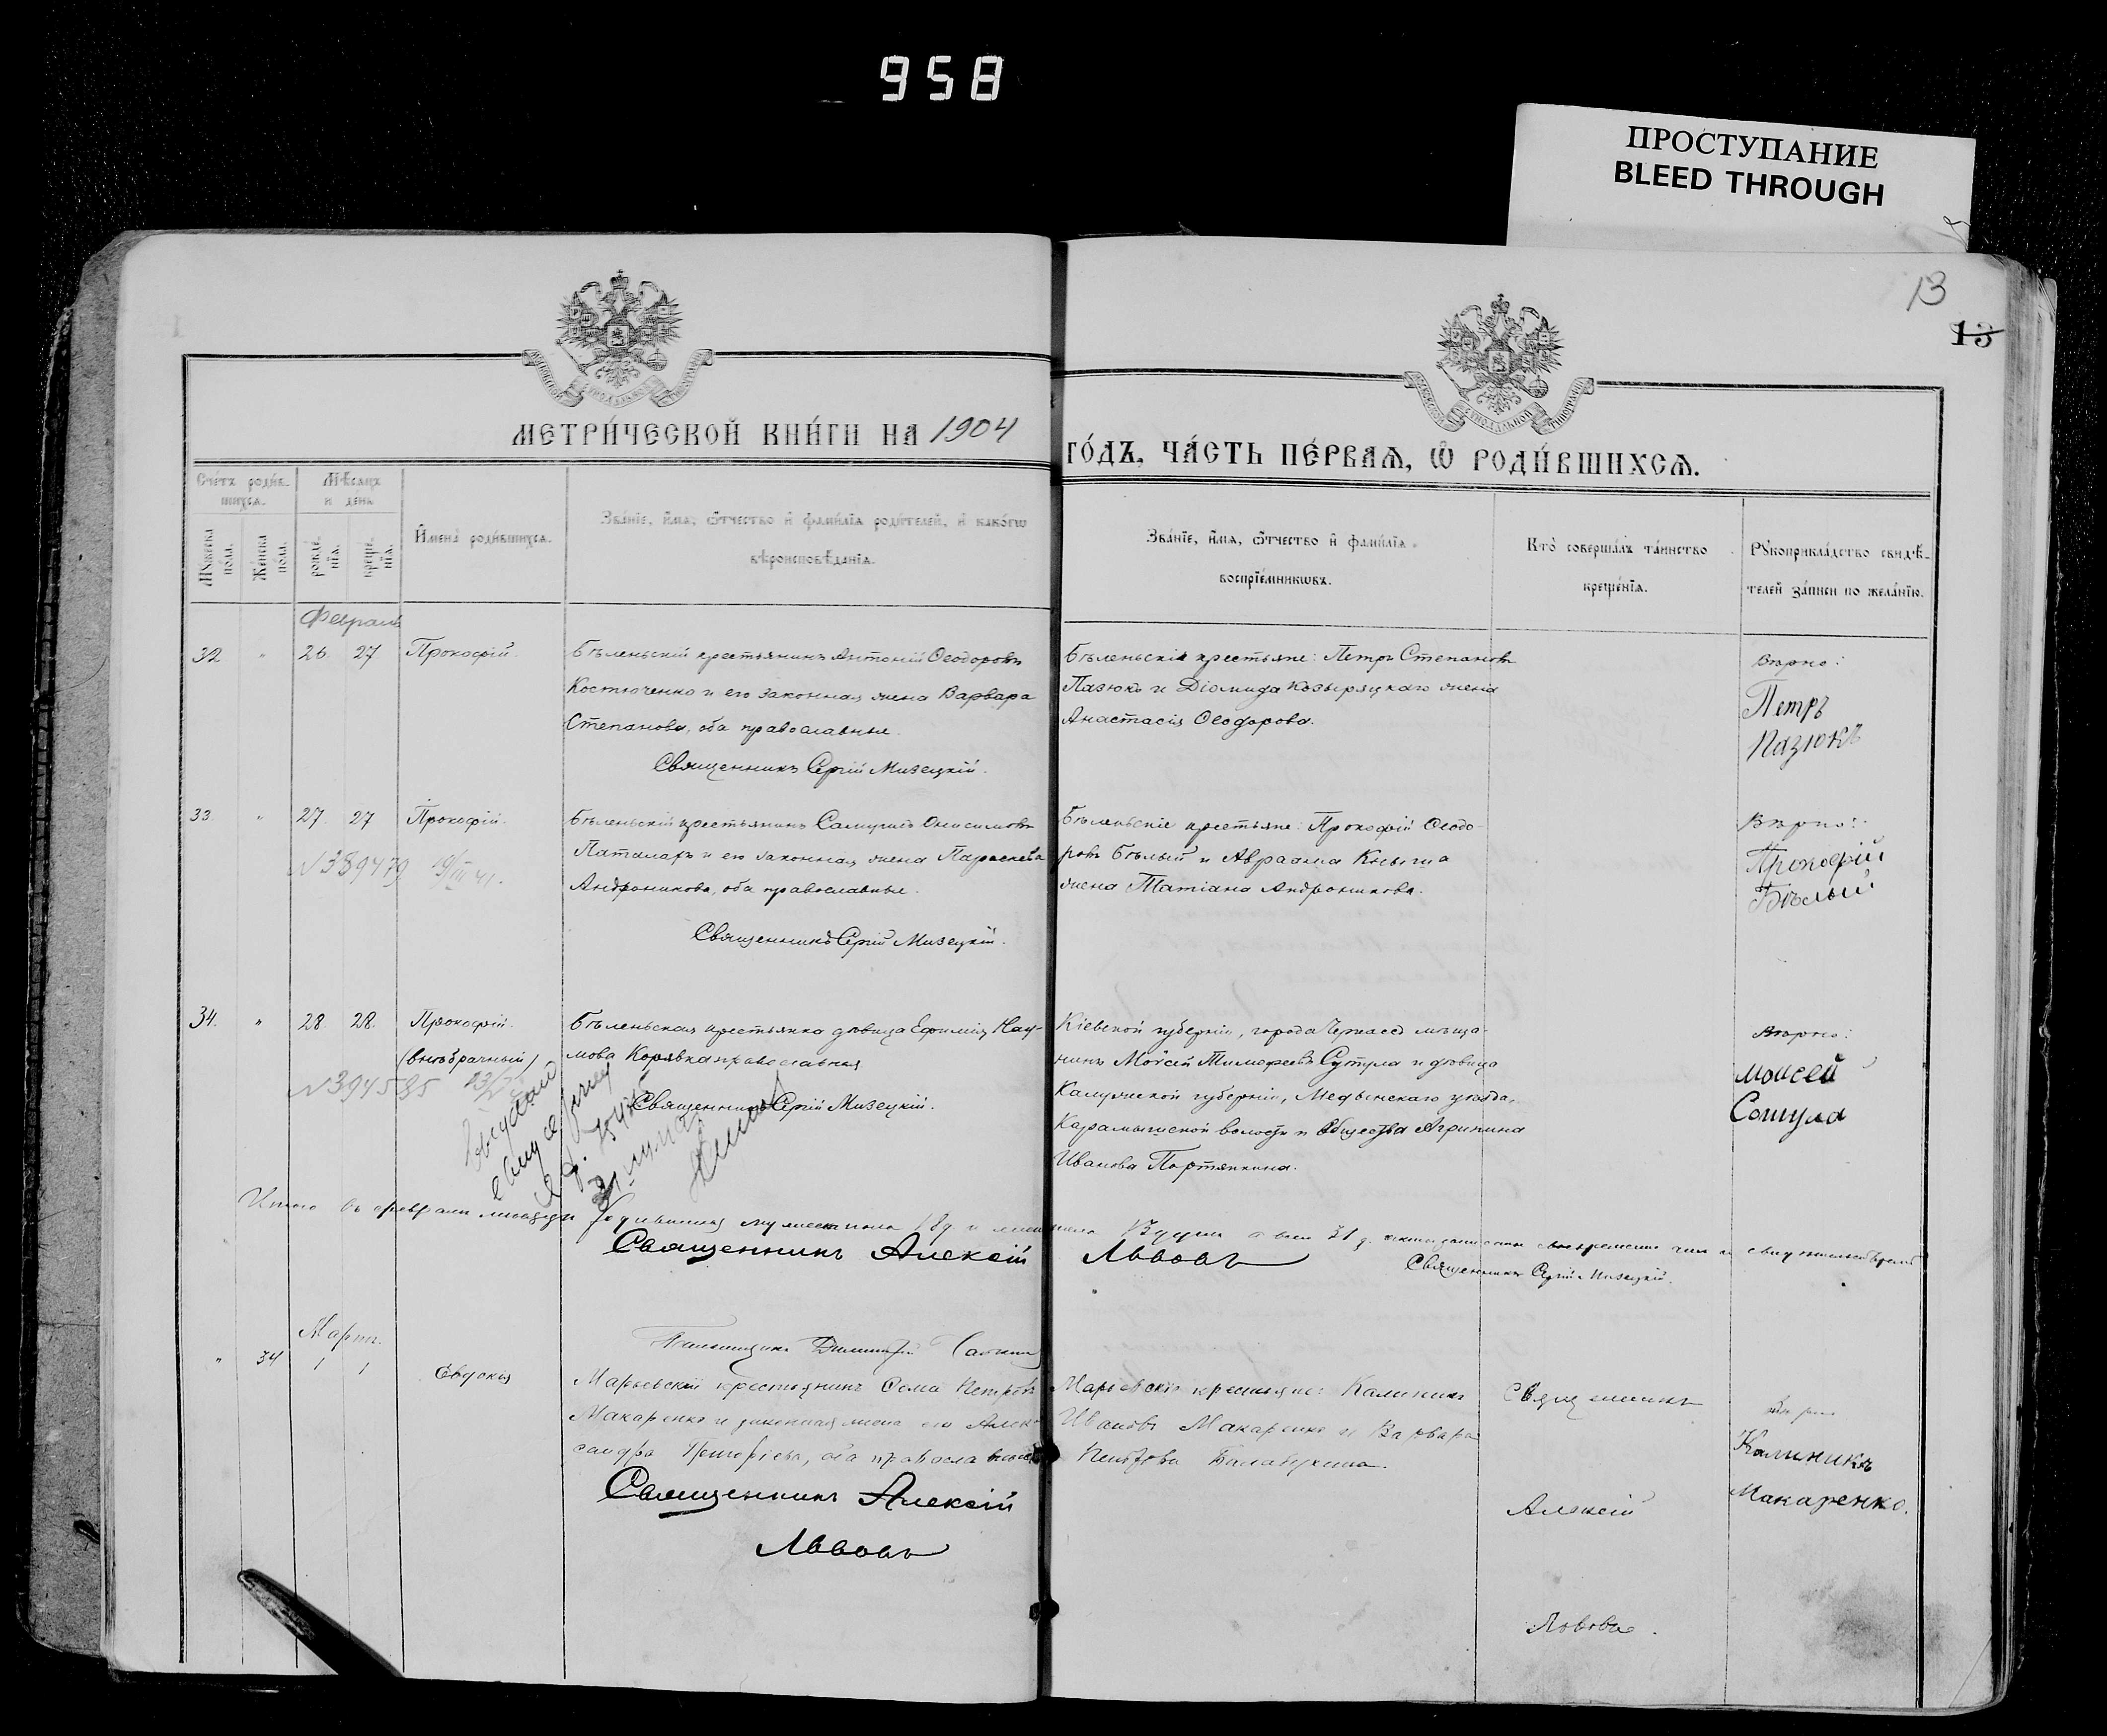 958
ПРОСТУПАНИЕ
BLEED THROUGH
13
13
МЕТРИ́ЧЕСКОЙ КНИ́ГИ НА 1904
ГО́ДЪ, ЧА́СТЬ ПЕ́РВАѦ, Ѽ РОДИ́ВШИХСѦ.
Сче́тъ роди́в-
шихсѧ.
Мѣ́сѧцъ
и день
Мꙋжеска пола.
Женска пола.
рожде́-
нїѧ.
креще́-
нїѧ.
И҆мена̀ роди́вшихсѧ.
Зва́нїе, и҆́мѧ, ѻ҆́тчество и҆ фамѵ́лїѧ роди́телей, и҆ како́гѡ
вѣроисповѣ́данїѧ.
Зва́нїе, и҆́мѧ, ѻ҆́тчество и҆ фамѵ́лїѧ
воспрїе́мникѡвъ.
Кто̀ соверша́лъ та́инство
креще́нїѧ.
Рꙋкоприкла́дство свидѣ́-
телей за́писи по жела́нїю.
Февраль
32 " 26. 27 Прокофій.
Бѣленьскій крестьянинъ Антоній Ѳеодоровъ
Костюченко и его законная жена Варвара
Степанова, оба православные.
Священникъ Сергій Мизецкій.
Бѣленьскіе крестьяне: Петръ Степановъ
Пазюкъ и Діомида Козыряцкаго жена
Анастасія Ѳеодорова.
Вѣрно:
Петръ
Пазюкъ
33. " 27. 27 Прокофій.
№ 389479 19/III 41.
Бѣленьскій крестьянинъ Самуилъ Онисимовъ
Паталахъ и его законная жена Параскева
Андроникова, оба православные.
Священникъ Сергій Мизецкій.
Бѣленьскіе крестьяне: Прокофій Ѳеодо-
ровъ Бѣлый и Авраама Книша
жена Татіана Андроникова.
Вѣрно:
Прокофій
Бѣлый
34. " 28 28. Прокофій.
(внебрачный)
№ 394585
Бѣленьская крестьянка дѣвица Ефимія Нау-
мова Корявка православная
Священникъ Сергій Мизецкій.
Кіевской губерніи, города Черкасъ мѣща-
нинъ Моѵсей Тимофеевъ Сутула и дѣвица
Калужской губерніи, Медынскаго уѣзда,
Карамышской волости и общества Агрипина
Иванова Портянкина.
Вѣрно:
Моисей
Сотула
Итого въ февралѣ мѣсяцѣ родившихся мужеска пола 18
Священникъ Алексій Львовъ
Священникъ Сергій Мизецкій.
Мартъ.
" 34 1 1 Евдокія
Псаломщикъ Димитрій
Марьевскій крестьянинъ Ѳома Петровъ
Макаренко и законная жена его Алек-
сандра Григорьева, оба православные
Священникъ Алексій
Львовъ
Марьевскіе крестьяне: Калиникъ
Ивановъ Макаренко и Варвара
Петрова
Священникъ
Алексій
Львовъ.
Калиникъ
Макаренко.